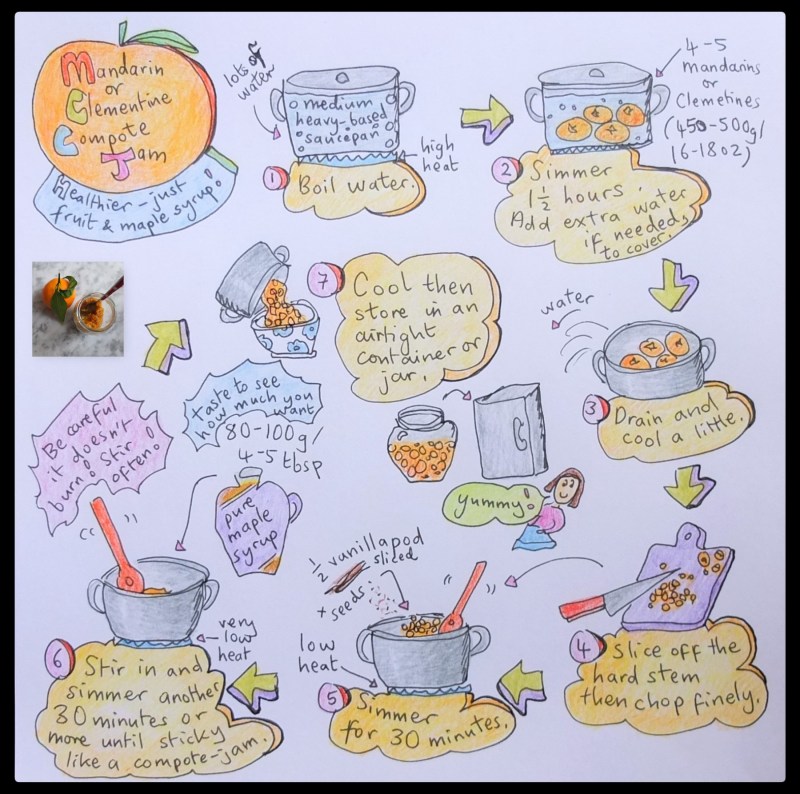 Mandarin
or
Clementine
Compote
Jam
Healthier - just
fruit & maple syrup!
lots of
water
medium
heavy-based
saucepan
high
heat
1
Boil water.
4-5
Mandarins
or
Clemetines
(450-500g/
16-18oz)
2
Simmer
1½ hours.
Add extra water
if needed,
to cover.
water
3
Drain and
cool a little.
4
Slice off the
hard stem
then chop finely.
½ vanilla pod
sliced
+ seeds.
low
heat
5
Simmer
for 30 minutes.
Be careful
it doesn't
burn! Stir
often!
taste to see
how much you
want
80-100g/
4-5 tbsp
pure
maple
syrup
very
low
heat
6
Stir in and
simmer another
30 minutes or
more until sticky
like a compote-jam.
7
Cool then
store in an
airtight
container or
jar.
yummy!